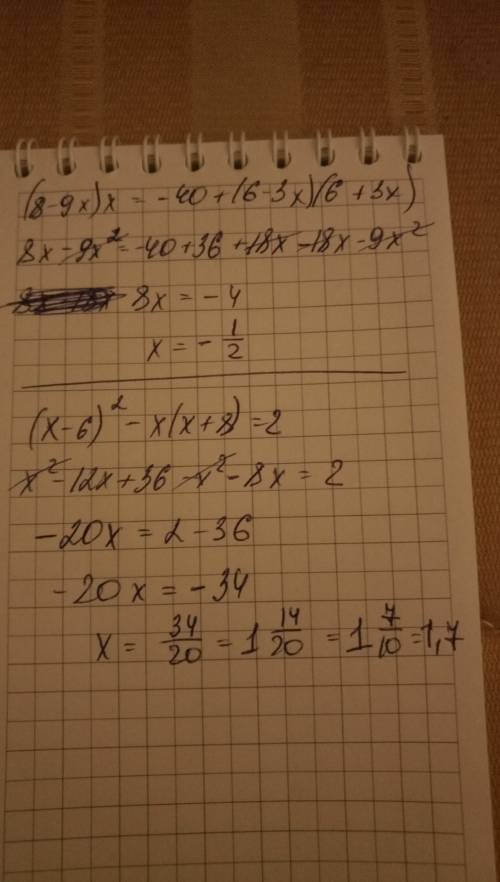 (8-9x)x = -40+(6-3x)(6+3x)
8x-9x²=-40+36+18x-18x-9x²
8x = -4
x = -1/2
(x-6)² - x(x+8)=2
x²-12x+36-x²-8x=2
-20x = 2-36
-20x = -34
x = 34/20 = 1 14/20 = 1 7/10 = 1,7